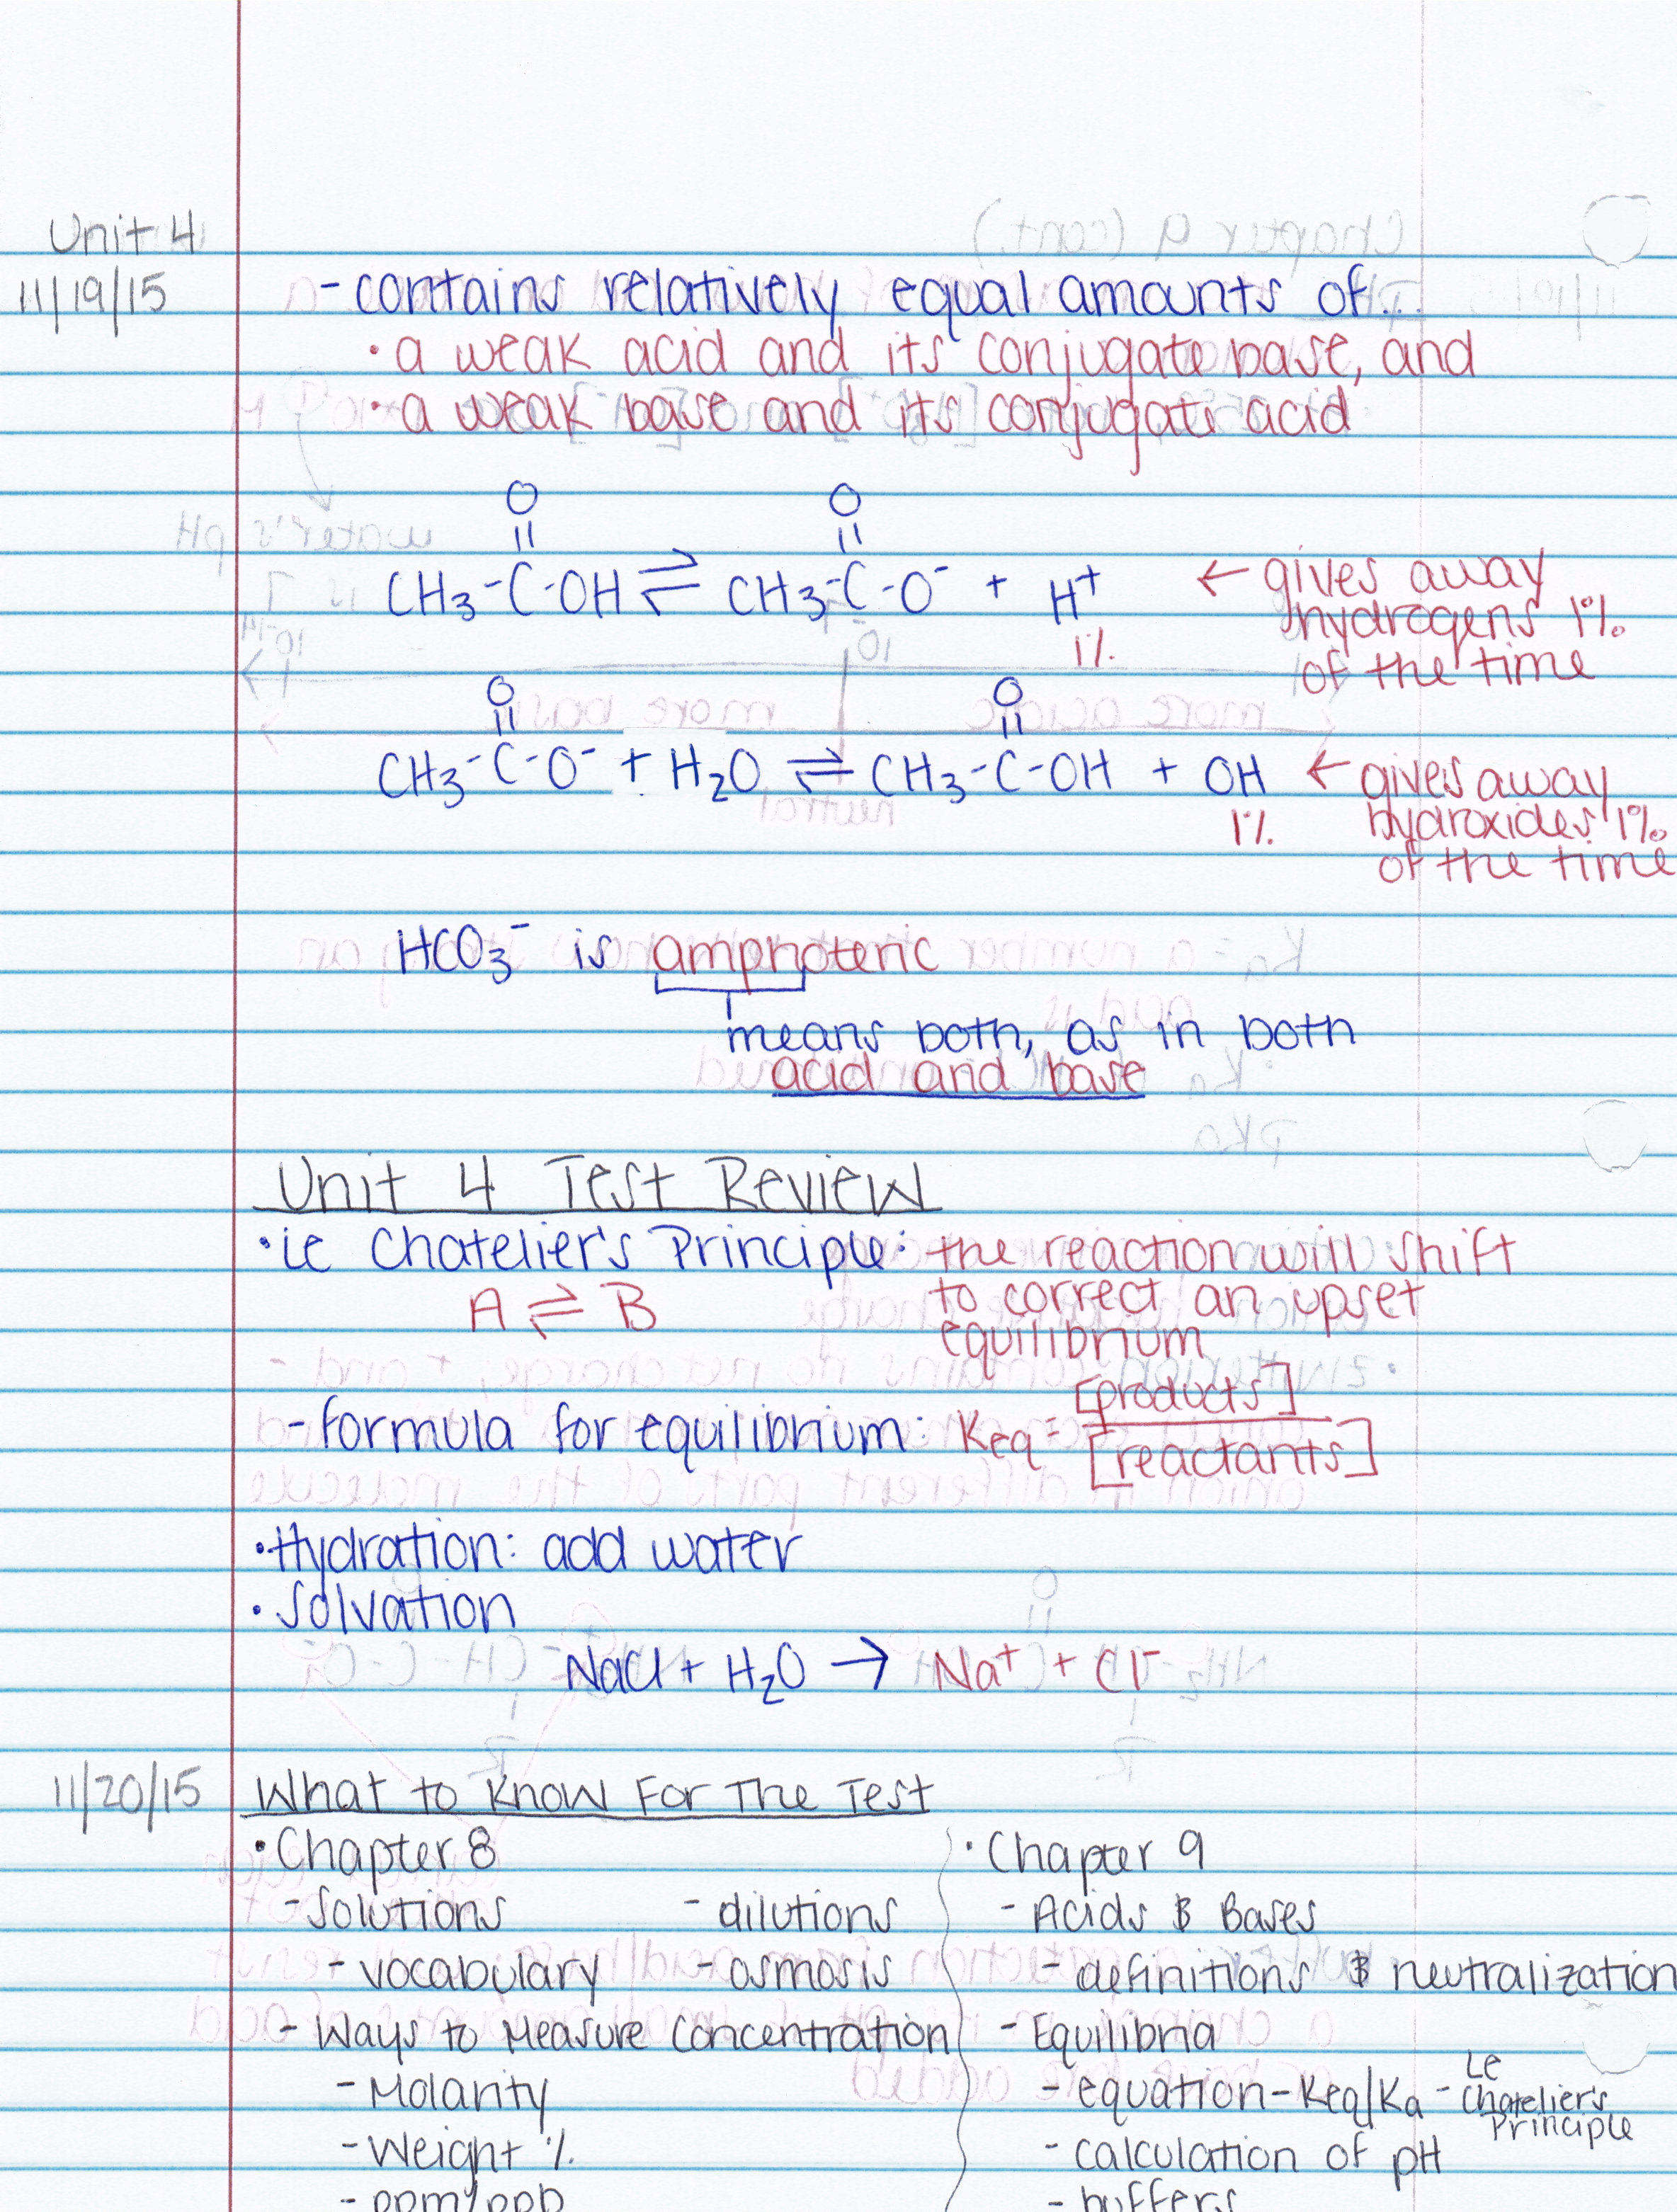 Unit 4
11/19/15
- contains relatively equal amounts of...
• a weak acid and its conjugate base, and
• a weak base and its conjugate acid
O O
|| ||
CH₃-C-OH ⇌ CH₃-C-O⁻ + H⁺ ← gives away
hydrogens 1%
1% of the time
O O
|| ||
CH₃-C-O⁻ + H₂O ⇌ CH₃-C-OH + OH ← gives away
1% hydroxides 1%
of the time
HCO₃⁻ is amphoteric
means both, as in both
acid and base
Unit 4 Test Review
• le Chatelier's Principle: the reaction will shift
A ⇌ B to correct an upset
equilibrium
- formula for equilibrium: Keq = [products] / [reactants]
• Hydration: add water
• Solvation
NaCl + H₂O → Na⁺ + Cl⁻
11/20/15 What to Know For The Test
• Chapter 8
- Solutions - dilutions
- vocabulary - osmosis
- Ways to Measure Concentration
- Molarity
- Weight %
- ppm/ppb
• Chapter 9
- Acids & Bases
- definitions & neutralization
- Equilibria
- equation - Keq/Ka - Le Chatelier's Principle
- calculation of pH
- buffers